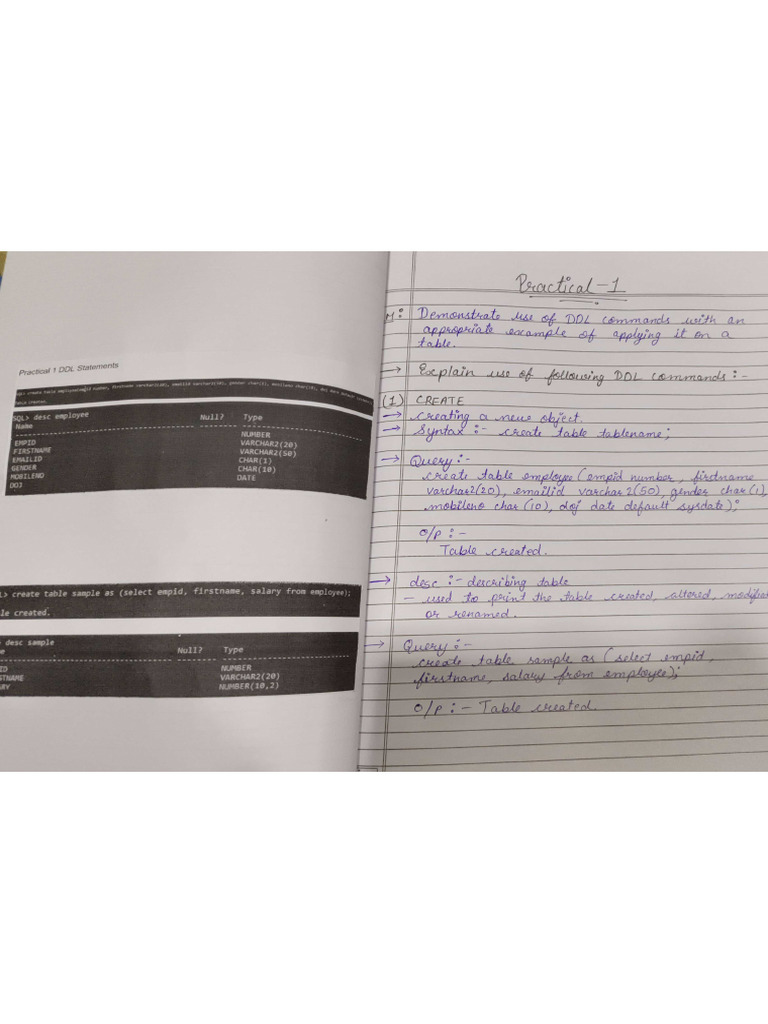 Practical 1 DDL Statements
SQL> create table employee(empid number, firstname varchar2(20), emailid varchar2(50), gender char(1), mobileno char(10), doj date default sysdate);
Table created.
SQL> desc employee
Name Null? Type
EMPID NUMBER
FIRSTNAME VARCHAR2(20)
EMAILID VARCHAR2(50)
GENDER CHAR(1)
MOBILENO CHAR(10)
DOJ DATE
L> create table sample as (select empid, firstname, salary from employee);
le created.
desc sample
e Null? Type
ID NUMBER
STNAME VARCHAR2(20)
ARY NUMBER(10,2)
Practical-1
M: Demonstrate use of DDL commands with an
appropriate example of applying it on a
table.
→ Explain use of following DDL commands :-
(1) CREATE
→ creating a new object.
→ Syntax :- create table tablename;
→ Query :-
create table employee (empid number, firstname
varchar2(20), emailid varchar2(50), gender char(1),
mobileno char (10), doj date default sysdate);
O/P :-
Table created.
→ desc :- describing table
- used to print the table created, altered, modifie
or renamed.
→ Query :-
create table sample as (select empid,
firstname, salary from employee);
O/P :- Table created.